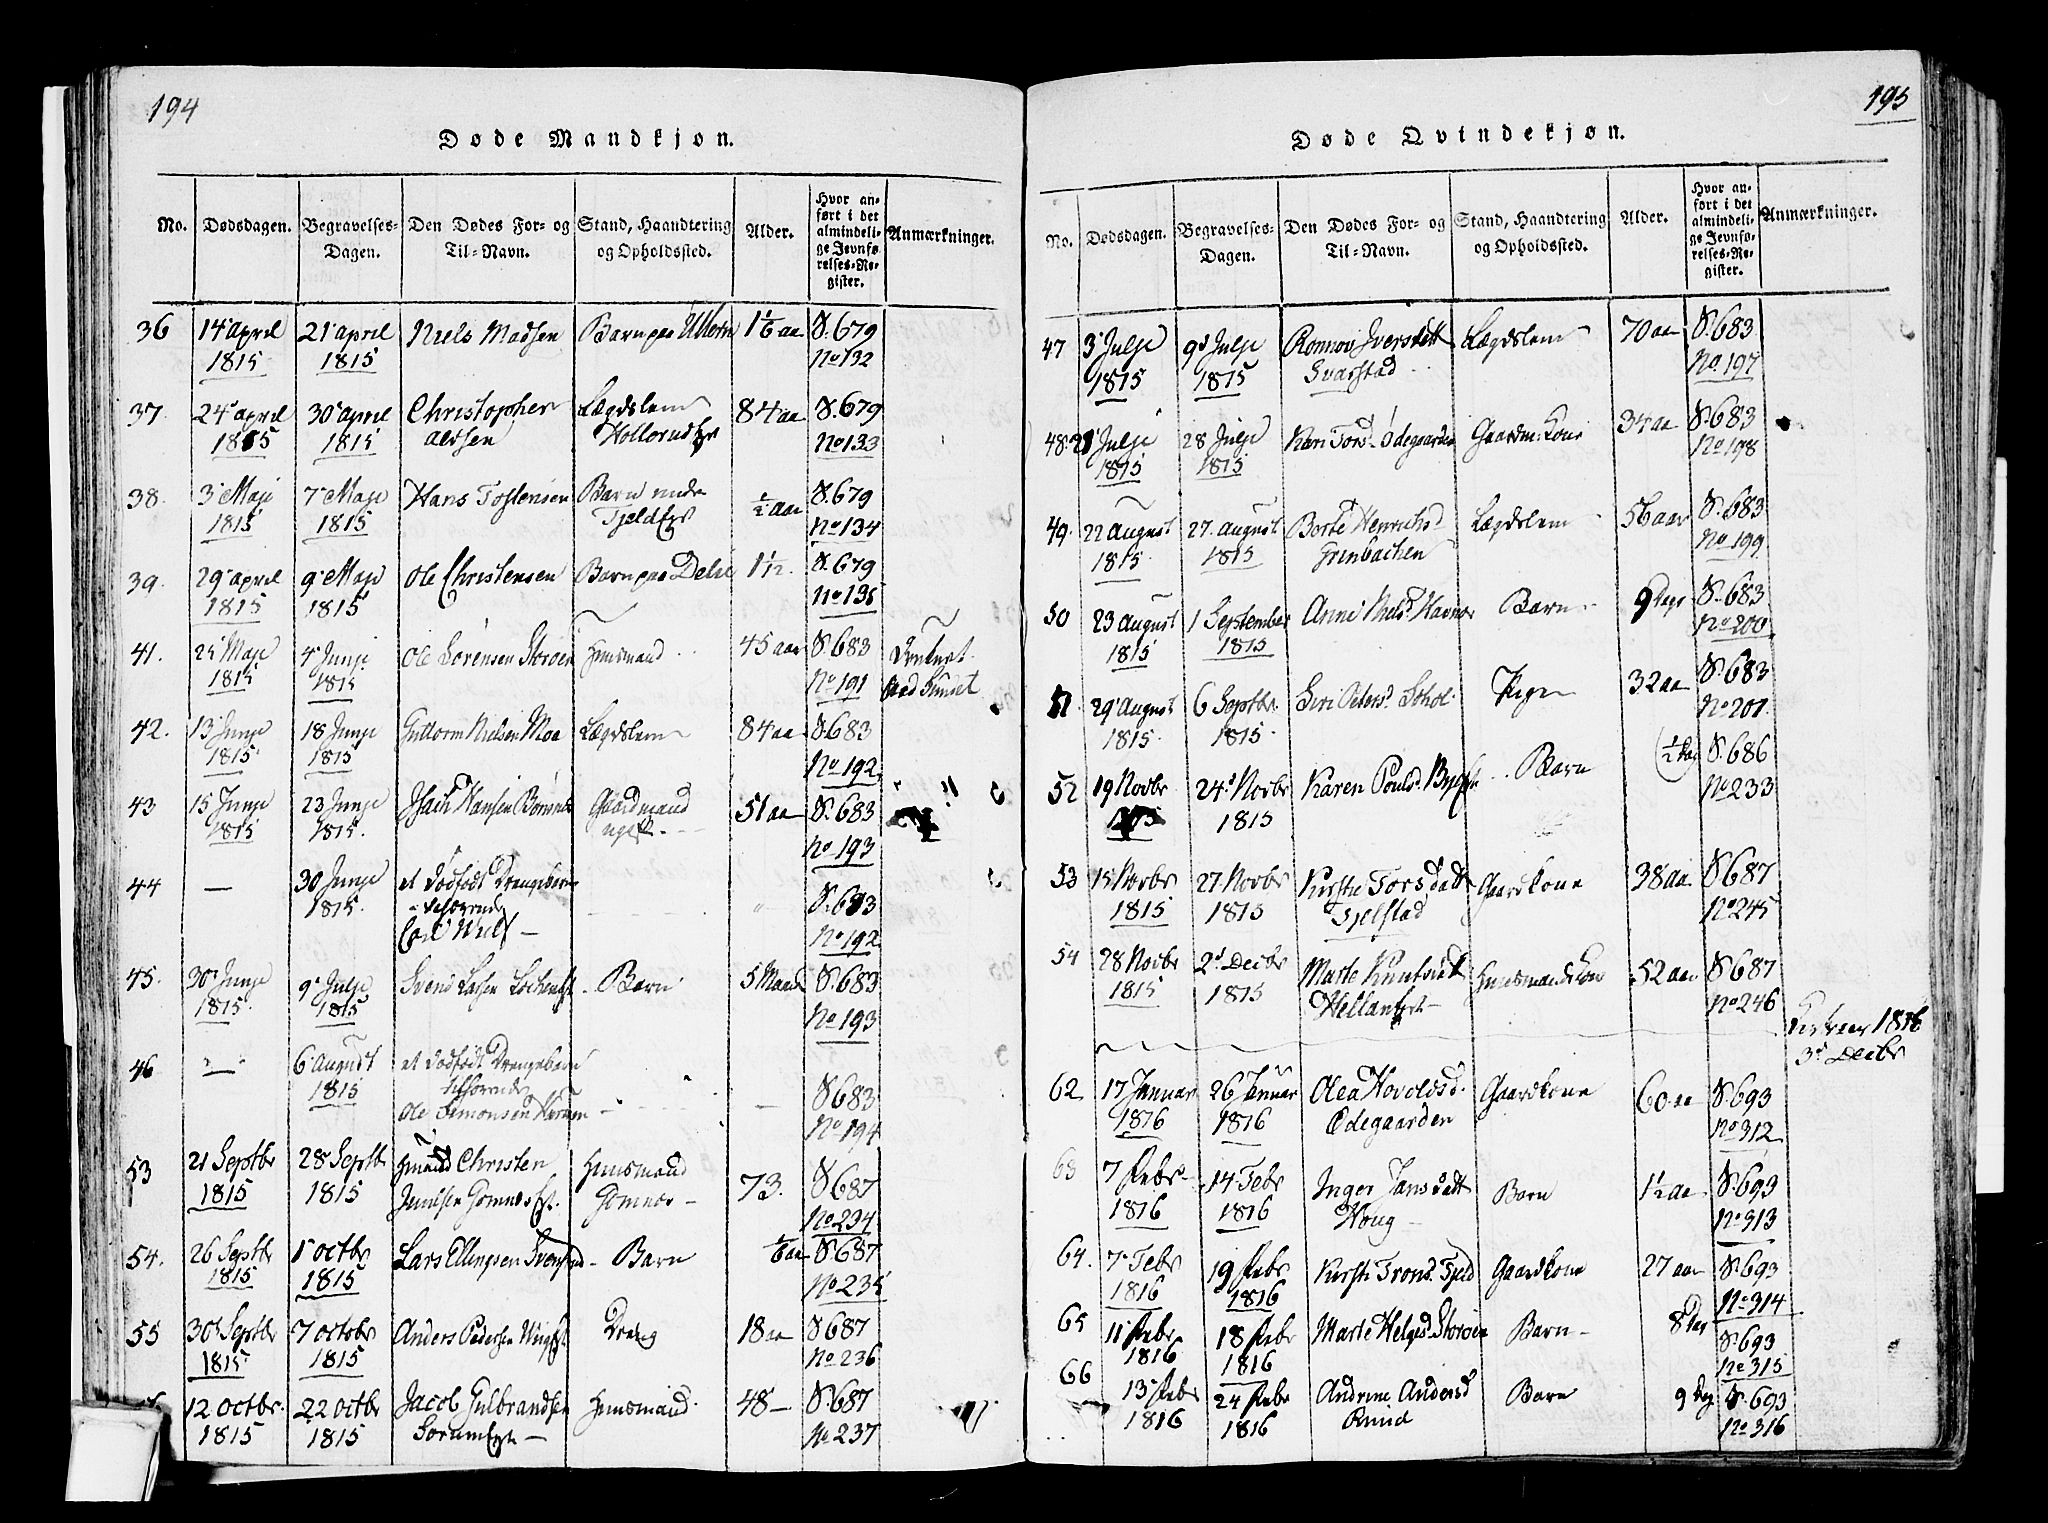 194
Døde Mandkjøn.
No.
Dødsdagen.
Begravelses-
Dagen.
Den Dødes For- og
Til-Navn.
Stand, Haandtering
og Opholdssted.
Alder.
Hvor an-
ført i det
almindeli-
ge Jevnfø-
relses-Re-
gister.
Anmærkninger.
36 14 april 21 april Niels Madsen Barn paa 1 1/6 aa S. 679
1815 1815 No 132
37. 24 april 30 april Christopher Lægdslem 84 aa S. 679
1815 1815 No 133
38. 3 Maji 7 Maji Hans Tostensen Barn 1/2 aar S. 679
1815 1815 No 134
39. 29 april 9 Maji Ole Christensen Barn paa 1 1/12. S. 679
1815 1815 No 135
41. Maji 4 Junji Ole Sörensen Storöen Huusmand 45 aar S. 683
1815 1815 No 191
42. 13 Junji 18 Junji Guttorm Nielsen Moe Lægdslem 84 aa S. 683
1815 1815 No 192
43 15 Junji 23 Junji Hansen Gaardmand 51 aa S. 683
1815 1815. No 193
44 — 30 Junji et dödfödt Drengebarn S. 683
1815. No 192
Wulf —
45. 30 Junji 9 Julji Svend Barn 5 Maad S. 683
1815 1815 No 193
46 6 August et dödfödt Drengebarn
1815 — S 683
Ole Simonsen No 194
53 21 Septbr 28 Septbr Christen Huusmand 73. S 687
1815 1815 No 234
54. 26 Septbr 1 octbr Lars Ellingsen Barn 1/6 aa S. 687
1815 1815 No 235
55 30 Septbr 7 octobr Anders Pedersen Dreng 18 aa S 687
1815 1815 No 236
12 octbr. 22 octbr Jacob Gulbrandsen Huusmand 48 — S. 687
1815 1815 No 237
195
Døde Qvindekjøn.
No.
Dødsdagen.
Begravelses-
Dagen.
Den Dødes For- og
Til-Navn.
Stand, Haandtering
og Opholdssted.
Alder.
Hvor an-
ført i det
almindeli-
ge Jevnfø-
relses-Re-
gister.
Anmærkninger.
47 3 Julji 9 Julji Ronnov Iversdatt Lægdslem 70 aa S. 683
1815 1815 Svarstad No. 197
48. 21 Julji 28 Julji Kari Torsd Ödegaarden Gaardm. Kone 34 aa S. 683
1815 1815 No 198
49. 22 August 27. august Borte Henrichsd Lægdslem 56 aar S. 683
1815. 1815 No 199
50 23 august 1 September Anne Nielsd. Havnor Barn 9 Dage S. 683
1815 1815 No 200
51. 29 august 6 Septbr Siri Peters. Pige 32 aa S. 683
1815. 1815. No 201.
52 19 Novbr 24 Novbr Karen Pouls. Barn 1/2 Dag S. 686
1815 No 233
53 15 Novbr 27 Novbr Kirstie Torsdatt Gaardkone 38 aa S. 687
1815 1815 Tjelstad No 245
54 28 Novbr 2 Decbr Marte Huusmandskone 52 aa S. 687
1815 1815 No 246
1816
3 Decbr
62 17 Januar 26 Januar Olea Hovoldsd. Gaardkone 60 aa S. 693
1816 1816 Ödegaarden No 312
63 7 Febr 14 Febr Inger Jansdatt Barn 1 1/2 aa. S. 693
1816 1816 Houg No 313
64. 7 Febr 19 Febr Kirsti Trons. Tjeld Gaardkone 27 aar S. 693
1816 1816 No 314
65 11 Febr 18 Febr Marte Helgesd. Storöen Barn 8 Dag S. 693
1816 1816 No 315
66 13 Febr 24 Febr Andrine Andersd Barn 9 Dag S. 693
1816 1816 Ruud No 316